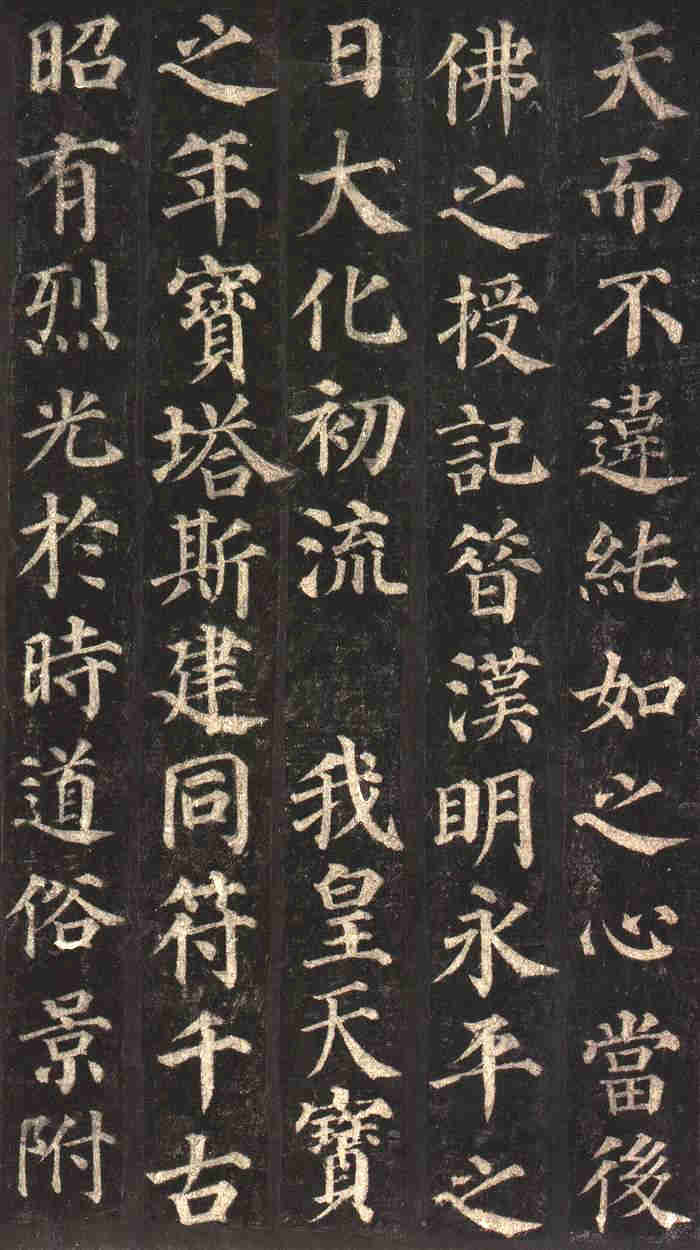 天而不違純如之心當後
佛之授記昝漢明永平之
日大化初流 我皇天寶
之年寶塔斯建同符千古
昭有烈光於時道俗景附